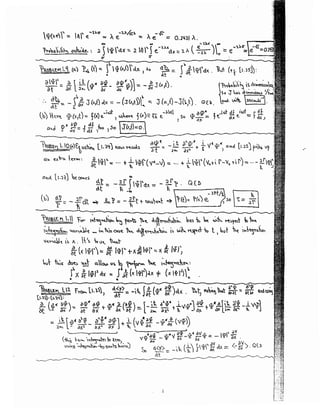 |Ψ(±σ)|² = |A|² e^{-2λσ} = λ e^{-2λ/√2λ} = λ e^{-√2} = 0.2431 λ.
Probability outside: 2 ∫_σ^∞ |Ψ|² dx = 2|A|² ∫_σ^∞ e^{-2λx} dx = 2λ (e^{-2λx}/-2λ)|_σ^∞ = e^{-2λσ} = e^{-√2} = 0.2431
Problem 1.9 (a) P_ab(t) = ∫_a^b |Ψ(x,t)|² dx, so dP_ab/dt = ∫_a^b ∂/∂t |Ψ|² dx. But (eq. [1.25]):
∂|Ψ|²/∂t = ∂/∂x [iħ/2m (Ψ* ∂Ψ/∂x - ∂Ψ*/∂x Ψ)] = -∂/∂x J(x,t).
Probability is dimensionless, so J has the dimensions 1/time, and units seconds⁻¹
∴ dP_ab/dt = -∫_a^b ∂/∂x J(x,t) dx = -[J(x,t)]|_a^b = J(a,t) - J(b,t). QED
(b) Here Ψ(x,t) = f(x) e^{-iat}, where f(x) ≡ , so Ψ ∂Ψ*/∂x = f e^{-iat} df/dx e^{iat} = f df/dx,
and Ψ* ∂Ψ/∂x = f df/dx too, so J(x,t) = 0.
Problem 1.10 (a) Equation [1.24] now reads ∂Ψ*/∂t = -iħ/2m ∂²Ψ*/∂x² + i/ħ V* Ψ*, and [1.25] picks up
an extra term: ∂/∂t |Ψ|² = ··· + i/ħ |Ψ|² (V* - V) = ··· + i/ħ |Ψ|² (V₀ + iΓ - V₀ + iΓ) = ··· - 2Γ/ħ |Ψ|²
and [1.27] becomes dP/dt = -2Γ/ħ ∫_{-∞}^∞ |Ψ|² dx = -2Γ/ħ P. QED
(b) dP/P = -2Γ/ħ dt ⇒ ln P = -2Γ/ħ t + constant ⇒ P(t) = P(0) e^{-2Γt/ħ}, so τ = ħ/2Γ
Problem 1.11 For integration by parts the differentiation has to be with respect to the
integration variable – in this case the differentiation is with respect to t, but the integration
variable is x. It's true that
∂/∂t (x|Ψ|²) = ∂x/∂t |Ψ|² + x ∂/∂t |Ψ|² = x ∂/∂t |Ψ|²,
but this does not allow us to perform the integration:
∫_a^b x ∂/∂t |Ψ|² dx = ∫_a^b ∂/∂t (x|Ψ|²) dx ≠ (x|Ψ|²)|_a^b.
Problem 1.12 From [1.33], d<p>/dt = -iħ ∫ ∂/∂t (Ψ* ∂Ψ/∂x) dx. But, noting that and using
[1.23]-[1.24]:
∂/∂t (Ψ* ∂Ψ/∂x) = ∂Ψ*/∂t ∂Ψ/∂x + Ψ* ∂/∂x (∂Ψ/∂t) = [-iħ/2m ∂²Ψ*/∂x² + i/ħ VΨ*] ∂Ψ/∂x + Ψ* ∂/∂x [iħ/2m ∂²Ψ/∂x² - i/ħ VΨ]
= iħ/2m [Ψ* ∂³Ψ/∂x³ - ∂²Ψ*/∂x² ∂Ψ/∂x] + i/ħ [VΨ* ∂Ψ/∂x - Ψ* ∂/∂x (VΨ)]
(this term integrates to zero, using integration by parts twice) VΨ* ∂Ψ/∂x - Ψ* V ∂Ψ/∂x - Ψ* ∂V/∂x Ψ = -|Ψ|² ∂V/∂x
So d<p>/dt = -iħ (i/ħ) ∫ -|Ψ|² ∂V/∂x dx = <-∂V/∂x>. QED